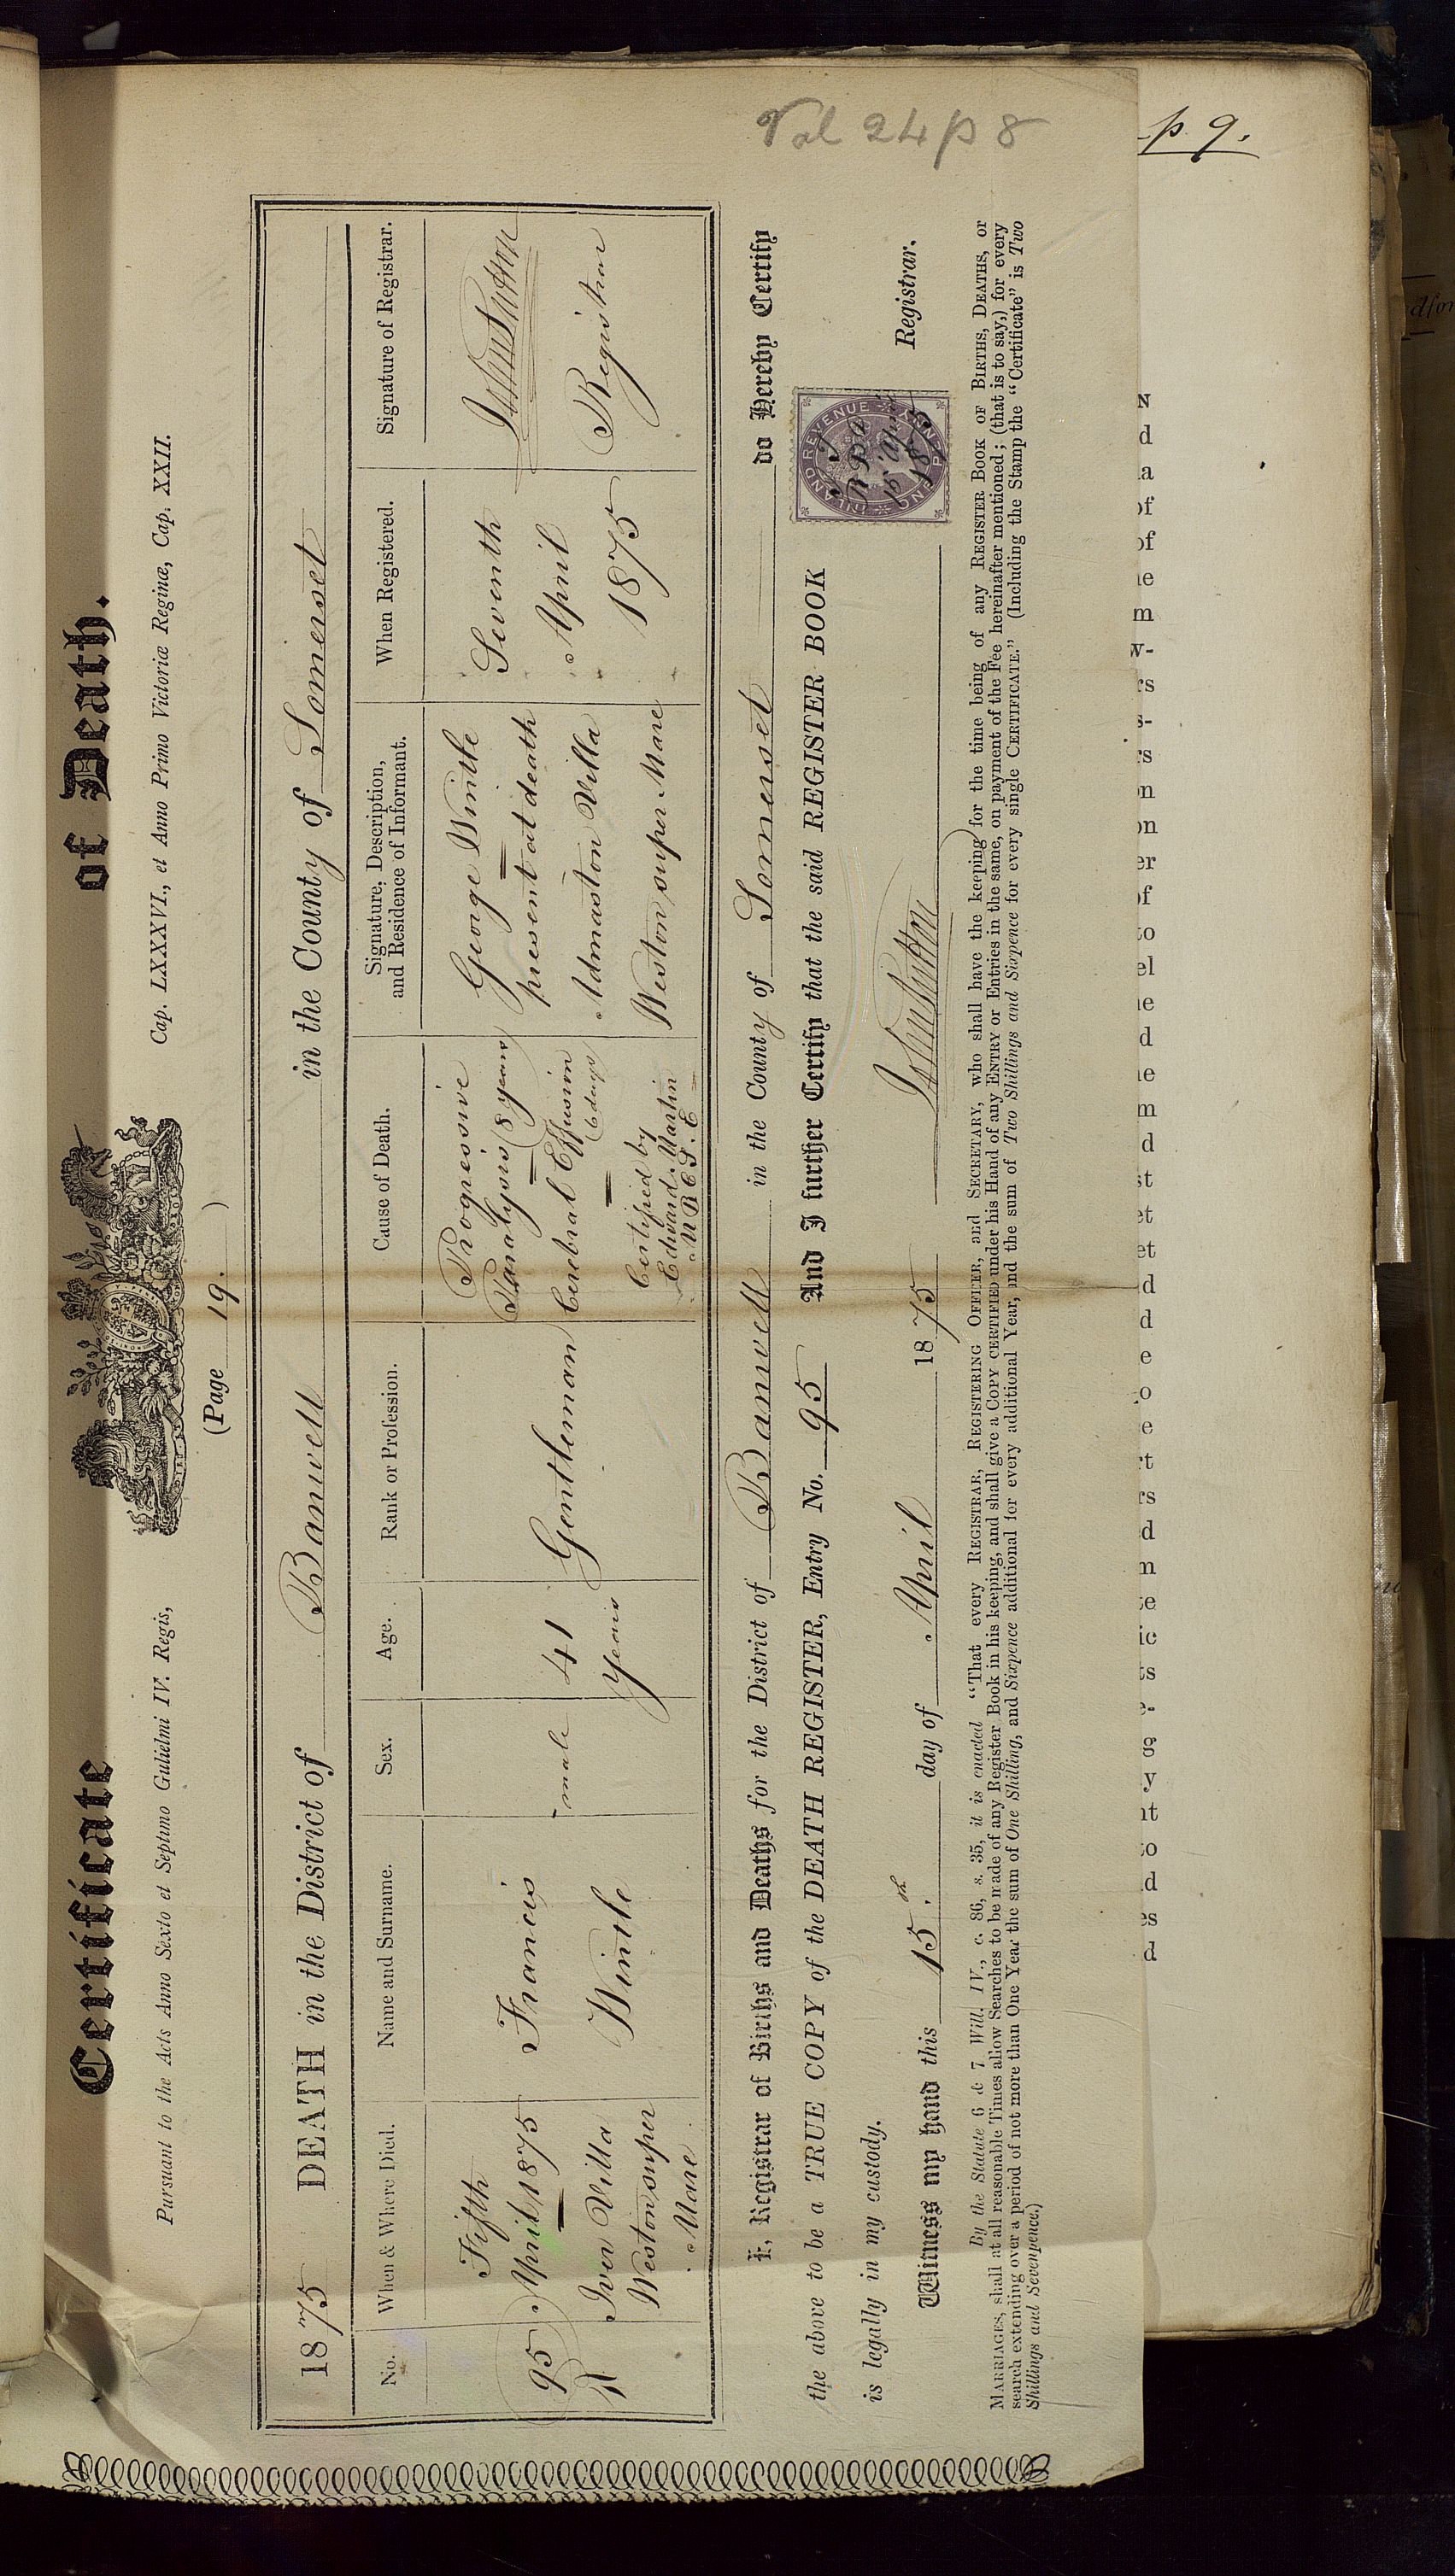 Certificate of Death.
Pursuant to the Acts Anno Sexto et Septimo Gulielmi IV. Regis, Cap. LXXXVI., et Anno Primo Victoriæ Reginæ, Cap. XXII.
(Page 19. )
1875 DEATH in the District of Banwell in the County of Somerset
No.
When & Where Died.
Name and Surname.
Sex.
Age.
Rank or Profession.
Cause of Death.
Signature, Description,
and Residence of Informant.
When Registered.
Signature of Registrar.
95
Fifth
April 1875
Iver Villa
Weston super
Mare
Francis
Wintle
male
41
years
Gentleman
Progressive
Paralysis (8 years)
Cerebral Effusion
(6 days)
Certified by
Edward Martin
M R C S. E
George Wintle
present at death
Admaston Villa
Weston super Mare
Seventh
April
1875
John Sutton
Registrar
I, Registrar of Births and Deaths for the District of Banwell in the County of Somerset do Hereby Certify
the above to be a TRUE COPY of the DEATH REGISTER, Entry No. 95 And I further Certify that the said REGISTER BOOK
is legally in my custody.
Witness my hand this 15th day of April 1875 John Sutton Registrar.
INLAND REVENUE
ONE PENNY
R B D
15. April
1875
By the Statute 6 & 7 Will. IV., c. 86, s. 35, it is enacted "That every REGISTRAR, REGISTERING OFFICER, and SECRETARY, who shall have the keeping for the time being of any REGISTER BOOK OF BIRTHS, DEATHS, or
MARRIAGES, shall at all reasonable Times allow Searches to be made of any Register Book in his keeping, and shall give a COPY CERTIFIED under his Hand of any ENTRY or Entries in the same, on payment of the Fee hereinafter mentioned; (that is to say,) for every
search extending over a period of not more than One Year the sum of One Shilling, and Sixpence additional for every additional Year, and the sum of Two Shillings and Sixpence for every single CERTIFICATE." (Including the Stamp the "Certificate" is Two
Shillings and Sevenpence.)
Vol 24 p 8
p 9.